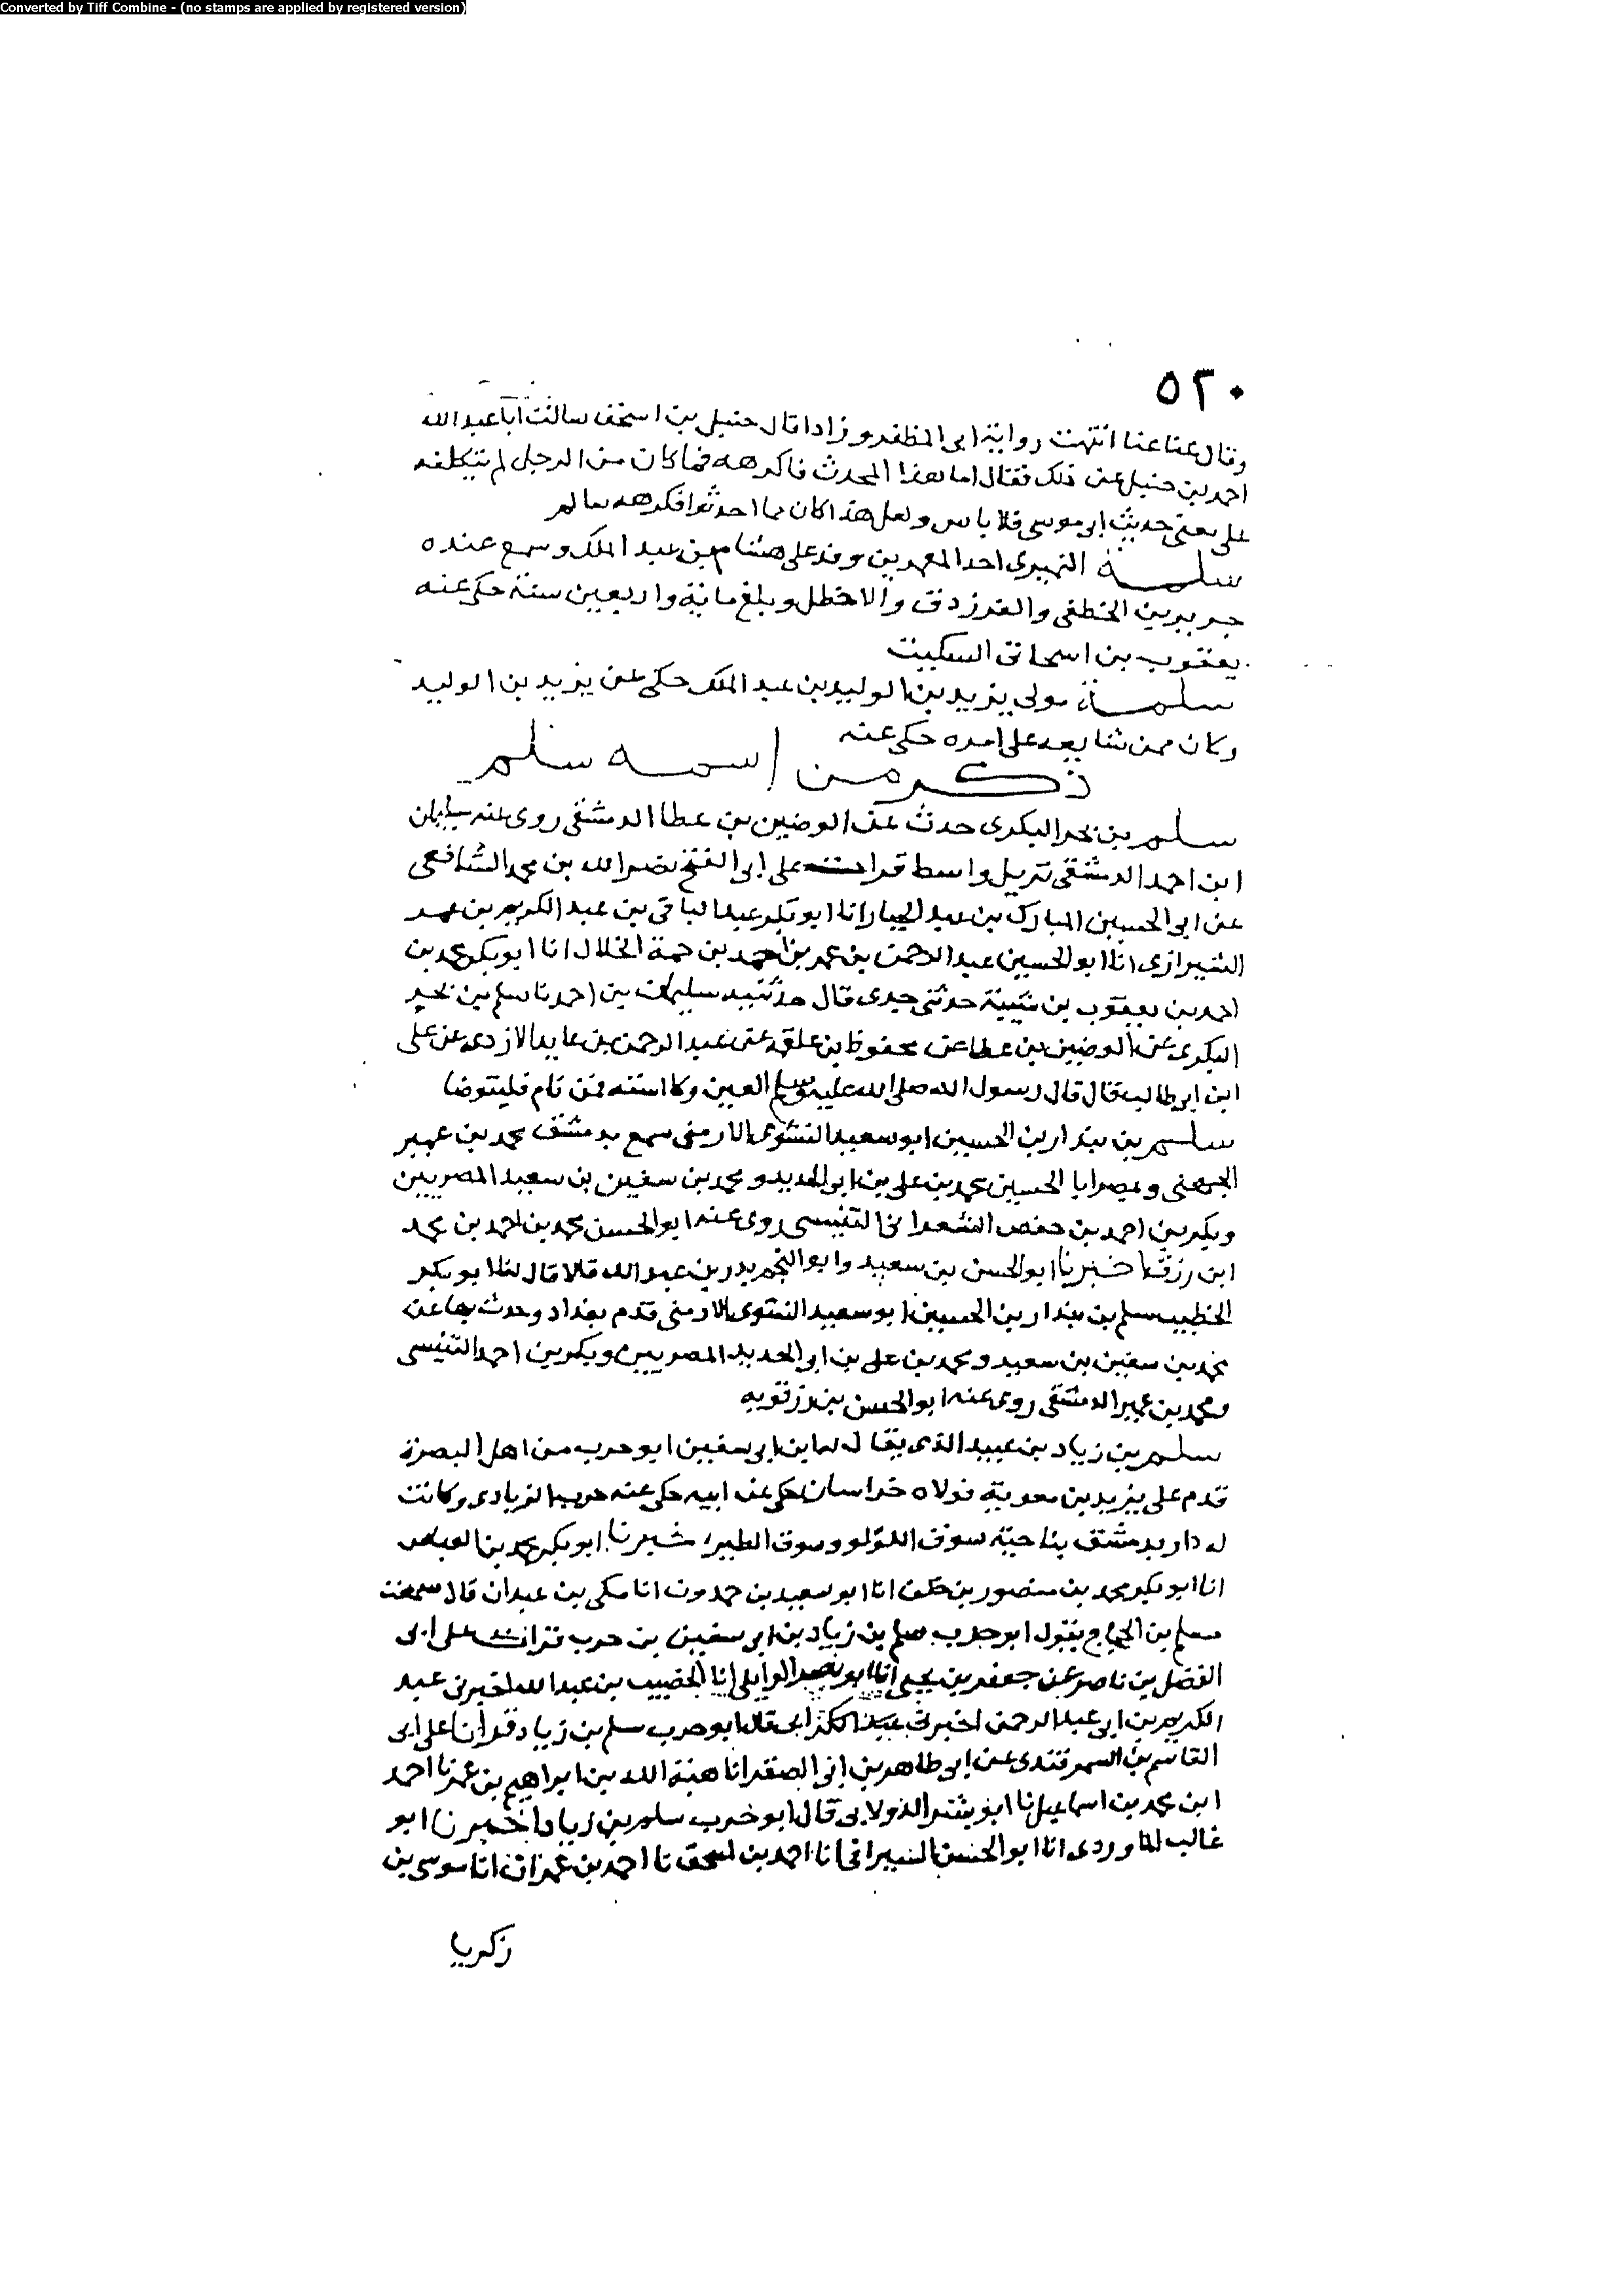 Converted by Tiff Combine - (no stamps are applied by registered version)
٥٢٠
وقال عنا عنا انتهت رواية ابى المظفر وزادا قال حنبل بن اسحق سالت ابا عبد الله
احمد بن حنبل عن ذلك فقال اما هذا المحدث فاكرهه فما كان من الرجل لم يتكلفه
على معنى حديث ابى موسى فلا باس ولعل هذا كان مما احدثوا فكرهه سالم
سلمة النميرى احد المعمرين وفد على هشام بن عبد الملك وسمع عنده
جرير بن الخطفى والفرزدق والاخطل وبلغ ماية واربعين سنة حكى عنه
يعقوب بن اسحاق السكيت
سلمة مولى يزيد بن الوليد بن عبد الملك حكى عن يزيد بن الوليد
وكان ممن شايعه على امره حكى عنه
ذكر من اسمه سلم
سلم بن بحر البكرى حدث عن الوضين بن عطا الدمشقى روى عنه سليمان
ابن احمد الدمشقى نزيل واسط قرات على ابى الفتح نصر الله بن محمد الشافعى
عن ابى الحسين المبارك بن عبد الجبار انا ابو بكر عبد الباقى بن عبد الكريم بن عمر
الشيرازى انا ابو الحسين عبد الرحمن بن عمر بن احمد بن حمة الخلال انا ابو بكر محمد بن
احمد بن يعقوب بن شيبة حدثنى جدى قال حدثنيه سليمان بن احمد نا سلم بن بحير
البكرى عن الوضين بن عطا عن محفوظ بن علقمة عن عبد الرحمن بن عايد الازدى عن على
ابن ابى طالب قال قال رسول الله صلى الله عليه وسلم العين وكا السته فمن نام فليتوضا
سلم بن بندار بن الحسين ابو سعيد النشوى الارمنى سمع بدمشق محمد بن عمير
الجهنى وبمصر ابا الحسين محمد بن على بن ابى الحديد ومحمد بن سفين بن سعيد المصريين
وبكر بن احمد بن حفص الشعرانى التنيسى روى عنه ابو الحسن محمد بن احمد بن محمد
ابن رزق اخبرنا ابو الحسن بن سعيد وابو النجم بدر بن عبد الله قالا قال لنا ابو بكر
الخطيب سلم بن بندار بن الحسين ابو سعيد النشوى الارمنى قدم بغداد وحدث بها عن
محمد بن سفين بن سعيد ومحمد بن على بن ابى الحديد المصريين وبكر بن احمد التنيسى
ومحمد بن عمير الدمشقى روى عنه ابو الحسن بن رزقويه
سلم بن زياد بن عبيد الذى يقال له ابن ابى سفين ابو حرب من اهل البصرة
قدم على يزيد بن معوية فولاه خراسان حكى عن ابيه حكى عنه حرب الزيادى وكانت
له دار بدمشق بناحية سوق اللولو وسوق الطير اخبرنا ابو بكر محمد بن العباس
انا ابو بكر محمد بن منصور بن خلف انا ابو سعيد بن حمدون انا مكى بن عبدان قال سمعت
مسلم بن الحجاج يقول ابو حرب سلم بن زياد بن ابى سفين بن حرب قرات على ابى
الفضل بن ناصر عن جعفر بن يحيى انا ابو نصر الوايلى انا الخصيب بن عبد الله اخبرنى عبد
الكريم بن ابى عبد الرحمن اخبرنى ابى قال ابو حرب سلم بن زياد قرانا على ابى
القاسم بن السمرقندى عن ابى طاهر بن ابى الصقر انا هبة الله بن ابراهيم بن عمر نا احمد
ابن محمد بن اسماعيل نا ابو بشر الدولابى قال ابو حرب سلم بن زياد اخبرنا ابو
غالب الماوردى انا ابو الحسن السيرافى انا احمد بن اسحق نا احمد بن عمران نا موسى بن
زكريا